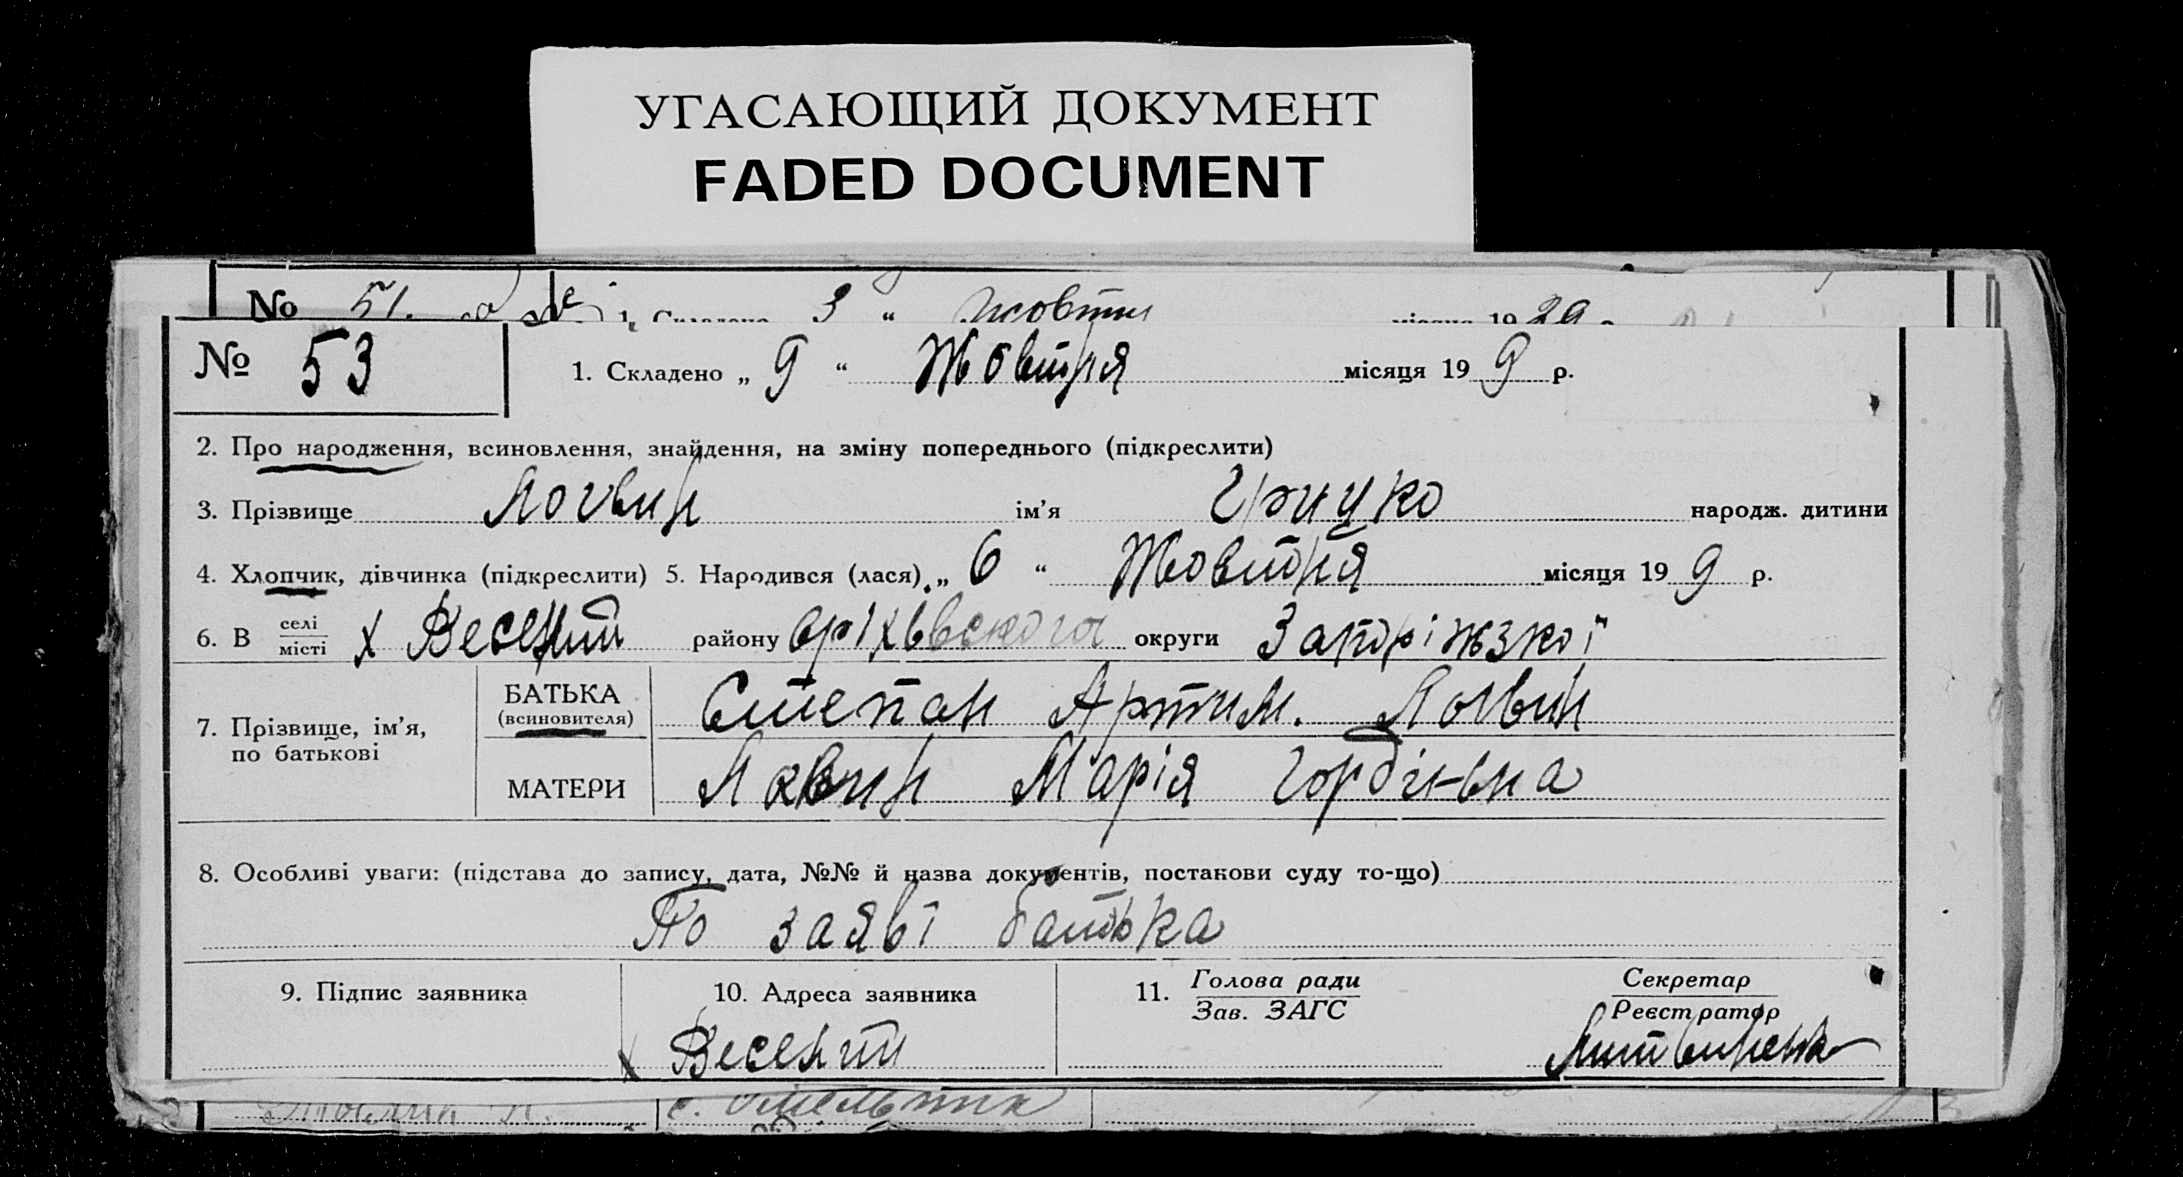 УГАСАЮЩИЙ ДОКУМЕНТ
FADED DOCUMENT
№ 51. 3 “ жовтня 1929
№ 53 1. Складено „ 9 “ Жовтня місяця 19 9 р.
2. Про народження, всиновлення, знайдення, на зміну попереднього (підкреслити)
3. Прізвище Логвин ім’я Грицко народж. дитини
4. Хлопчик, дівчинка (підкреслити) 5. Народився (лася) „ 6 “ Жовтня місяця 19 9 р.
6. В селі/місті х Веселий району Оріхівського округи Запоріжзкої
7. Прізвище, ім’я, по батькові
БАТЬКА (всиновителя) Степан Артим. Логвин
МАТЕРИ Логвин Марія Гордіївна
8. Особливі уваги: (підстава до запису, дата, №№ й назва документів, постакови суду то-що)
По заяві батька
9. Підпис заявника 10. Адреса заявника 11. Голова ради/Зав. ЗАГС Секретар/Реєстратор
х Веселий Литвиненко
с. Омельник